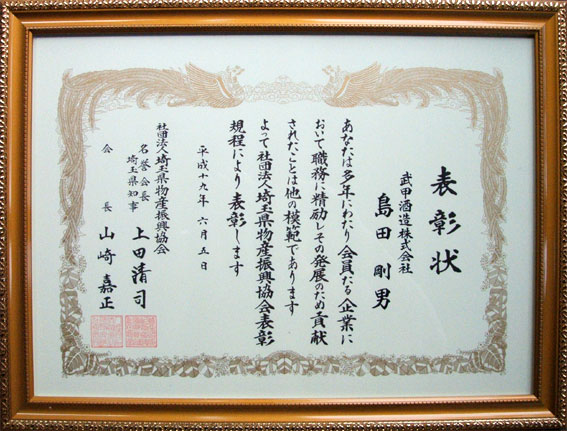 表彰状
武甲酒造株式会社
島田剛男
あなたは多年にわたり会員たる企業に
おいて職務に精励しその発展のため貢献
されたことは他の模範であります
よって社団法人埼玉県物産振興協会表彰
規程により表彰します
平成十九年六月五日
社団法人埼玉県物産振興協会
名誉会長
埼玉県知事 上田清司
会長 山崎嘉正